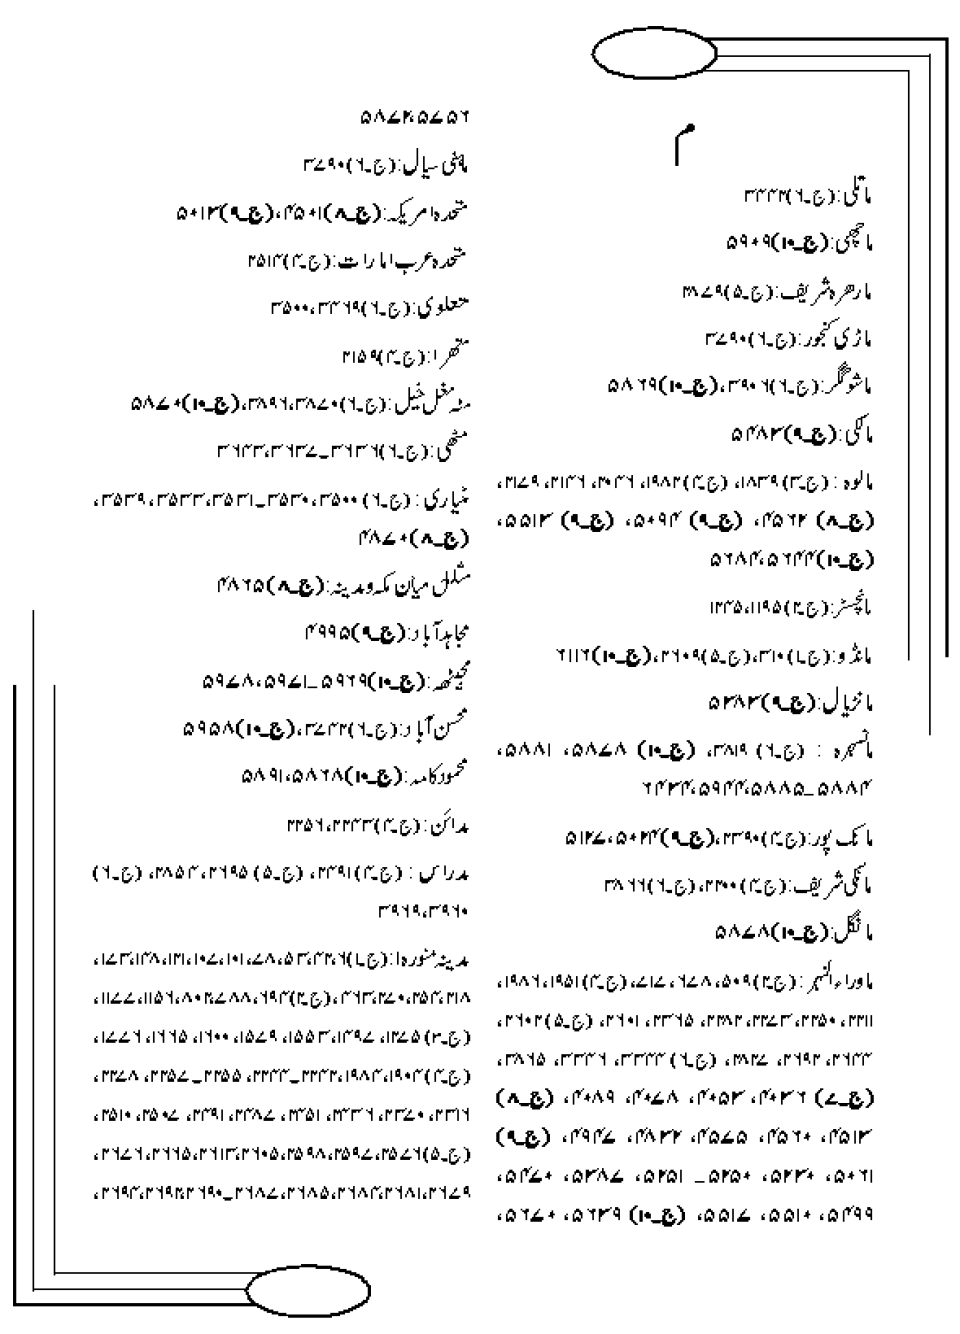 م
ماتلی:(ج۔۶)۳۴۴۲
ماچھی:(ج۔۱۰)۵۹۰۹
مارھرہ شریف:(ج۔۵)۲۸۷۹
ماڑی کنجور:(ج۔۶)۳۷۹۰
ماشوگگر:(ج۔۶)۳۹۰۶،(ج۔۱۰)۵۸۶۹
مالکی:(ج۔۹)۵۴۸۳
مالوہ:(ج۔۳)۱۸۳۹، (ج۔۴)۱۹۸۲، ۲۰۴۶، ۲۱۴۶، ۲۱۷۹،
(ج۔۸) ۴۵۶۲، (ج۔۹) ۵۰۹۴، (ج۔۹) ۵۵۱۳،
(ج۔۱۰)۵۶۸۴،۵۶۴۴
مانچسٹر:(ج۔۲)۱۲۴۵،۱۱۹۵
مانڈو:(ج۔۱)۳۱۰،(ج۔۵)۲۶۰۹،(ج۔۱۰)۶۱۱۲
مانڑیال:(ج۔۹)۵۳۸۳
مانسہرہ : (ج۔۶) ۳۸۱۹، (ج۔۱۰) ۵۸۷۸، ۵۸۸۱،
۵۸۸۴۔۵۸۸۵،۵۹۴۴،۶۴۳۴
مانک پور:(ج۔۴)۲۳۹۰،(ج۔۹)۵۰۲۴،۵۱۲۷
مانکی شریف:(ج۔۴)۲۲۰۰،(ج۔۶)۳۸۶۶
مانگل:(ج۔۱۰)۵۸۷۸
ماوراء النہر:(ج۔۲)۵۰۹، ۶۷۸، ۷۱۷،(ج۔۴)۱۹۵۱، ۱۹۸۶،
۲۲۱۱، ۲۲۵۰، ۲۲۷۳، ۲۳۸۲، ۲۳۶۵، ۲۶۰۱، (ج۔۵)۲۶۰۲،
۲۶۴۴، ۲۶۹۲، ۲۸۲۷، (ج۔۶)۳۳۲۳، ۳۳۴۶، ۳۸۶۵،
(ج۔۷) ۴۰۳۶، ۴۰۵۳، ۴۰۷۸، ۴۰۸۹، (ج۔۸)
۴۵۱۳، ۴۵۶۰، ۴۵۷۵، ۴۸۳۲، ۴۹۴۷، (ج۔۹)
۵۰۶۱، ۵۲۳۰، ۵۲۵۰ _ ۵۲۵۱، ۵۳۸۷، ۵۴۷۰،
۵۴۹۹، ۵۵۱۰، ۵۵۱۷، (ج۔۱۰) ۵۶۳۹، ۵۶۷۰،
۵۸۷۲،۵۷۵۶
ماہنی سیال:(ج۔۶)۳۷۹۰
متحدہ امریکہ:(ج۔۸)۴۵۰۱،(ج۔۹)۵۰۱۳
متحدہ عرب امارات:(ج۔۴)۲۵۱۴
متعلوی:(ج۔۶)۳۵۰۰،۳۴۶۹
متھرا:(ج۔۴)۲۱۵۹
مٹہ مغل خیل:(ج۔۶)۳۸۹۶،۳۸۷۰،(ج۔۱۰)۵۸۷۰
مٹھی:(ج۔۶)۳۶۳۶_۳۶۳۷،۳۶۴۳
مٹیاری:(ج۔۶) ۳۵۰۰، ۳۵۳۰_۳۵۳۱، ۳۵۳۳، ۳۵۳۹،
(ج۔۸)۴۸۷۰
مثلل میان مکہ ومدینہ:(ج۔۸)۴۸۶۵
مجاہد آباد:(ج۔۹)۴۹۹۵
مچیٹھہ:(ج۔۱۰)۵۹۶۹_۵۹۷۱، ۵۹۷۸
محسن آباد:(ج۔۶)۳۷۴۲،(ج۔۱۰)۵۹۵۸
محمود کامہ:(ج۔۱۰)۵۸۹۱،۵۸۶۸
مدائن:(ج۔۴)۲۲۵۶،۲۲۴۳
مدراس : (ج۔۴)۲۴۹۱، (ج۔۵) ۲۶۹۵، ۲۸۵۴، (ج۔۶)
۳۹۶۹،۳۹۶۰
مدینہ منورہ:(ج۔۱)۲۶، ۴۲، ۵۳، ۷۸، ۱۰۱، ۱۰۷، ۱۲۱، ۱۴۸، ۱۷۳،
۲۱۸، ۲۵۴، ۲۷۰، ۴۶۳،(ج۔۲)۶۹۴، ۷۸۸، ۸۰۲، ۱۱۵۶، ۱۱۷۷،
(ج۔۳)۱۲۷۵، ۱۴۹۷، ۱۵۵۳، ۱۵۷۹، ۱۶۰۰، ۱۶۶۵، ۱۷۷۶،
(ج۔۴)۱۹۰۴، ۱۹۸۴، ۲۲۴۲_۲۲۴۴، ۲۲۵۵_۲۲۵۷، ۲۲۷۸،
۲۳۱۶، ۲۳۷۰، ۲۴۳۶، ۲۴۵۱، ۲۴۸۷، ۲۴۹۱، ۲۵۰۷، ۲۵۱۰،
(ج۔۵)۲۵۷۶، ۲۵۹۷، ۲۵۹۸، ۲۶۰۵، ۲۶۱۳، ۲۶۶۵، ۲۶۷۶،
۲۶۷۹، ۲۶۸۱، ۲۶۸۴، ۲۶۸۵، ۲۶۸۷_۲۶۹۰، ۲۶۹۲، ۲۶۹۴،